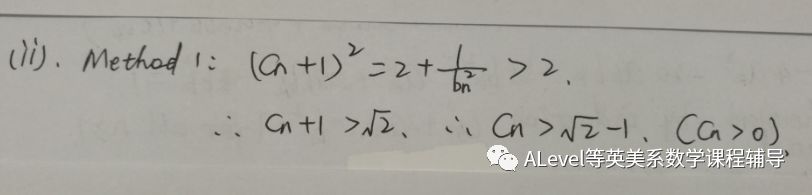 (ii). Method 1: (Cn+1)² = 2 + 1/bn² > 2.
∴ Cn+1 > √2. ∴ Cn > √2-1. (Cn>0).
ALevel等英美系数学课程辅导